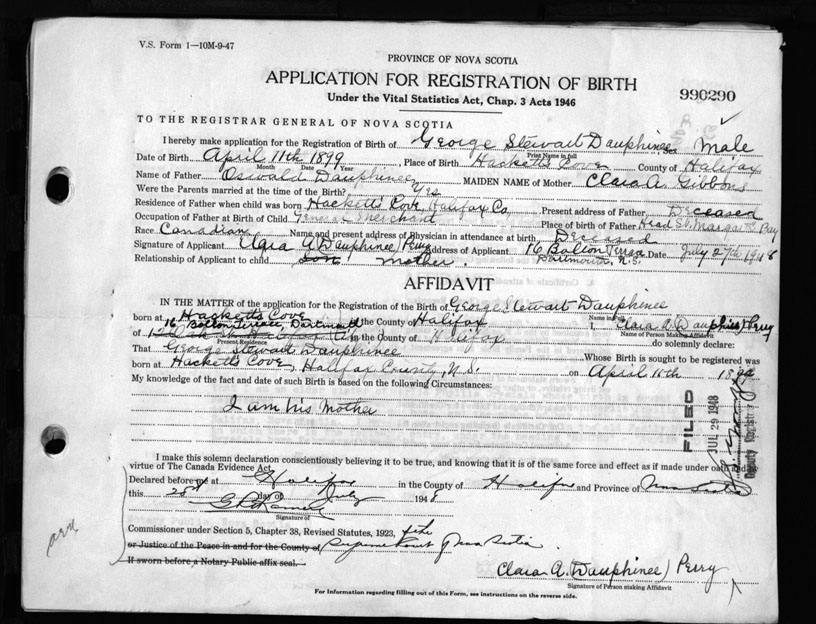 V.S. Form 1—10M-9-47
PROVINCE OF NOVA SCOTIA
APPLICATION FOR REGISTRATION OF BIRTH
990290
Under the Vital Statistics Act, Chap. 3 Acts 1946
TO THE REGISTRAR GENERAL OF NOVA SCOTIA
I hereby make application for the Registration of Birth of George Stewart Dauphinee Sex Male
Print Name in full
Date of Birth April 11th 1899, Place of Birth Hacketts Cove County of Halifax
Month Date Year
Name of Father Oswald Dauphinee MAIDEN NAME of Mother Clara A. Gibbons
Were the Parents married at the time of the Birth? Yes
Residence of Father when child was born Hacketts Cove, Halifax Co, Present address of Father Deceased
Occupation of Father at Birth of Child General Merchant Place of birth of Father Head St. Margarets Bay
Race Canadian Name and present address of Physician in attendance at birth, Deceased
Signature of Applicant Clara A (Dauphinee) Perry Address of Applicant 16 Bolton Terrace Date July 27th 1948
Dartmouth, N.S.
Relationship of Applicant to child son mother
AFFIDAVIT
IN THE MATTER of the application of the Registration of the Birth of George Stewart Dauphinee
Name in Full
born at Hacketts Cove in the County of Halifax I, Clara A. (Dauphinee) Perry
Name of Person Making Affidavit
16 Bolton Terrace, Dartmouth
of in the County of Halifax do solemnly declare:
Present Residence
That George Stewart Dauphinee Whose Birth is sought to be registered was
born at Hacketts Cove, Halifax County, N.S. on April 11th 1899
My knowledge of the fact and date of such Birth is based on the following Circumstances:
I am his Mother
FILED
JUL 29 1948
Deputy Registrar
I make this solemn declaration conscientiously believing it to be true, and knowing that it is of the same force and effect as if made under oath and by
virtue of The Canada Evidence Act.
Declared before me at Halifax in the County of Halifax and Province of Nova Scotia
this 28th day of July 1948
Signature of
Commissioner under Section 5, Chapter 38, Revised Statutes, 1923, of the
or Justice of the Peace in and for the County of Supreme Court of Nova Scotia
If sworn before a Notary Public affix seal.
Clara A. (Dauphinee) Perry
Signature of Person making Affidavit
For Information regarding filling out of this Form, see instructions on the reverse side.